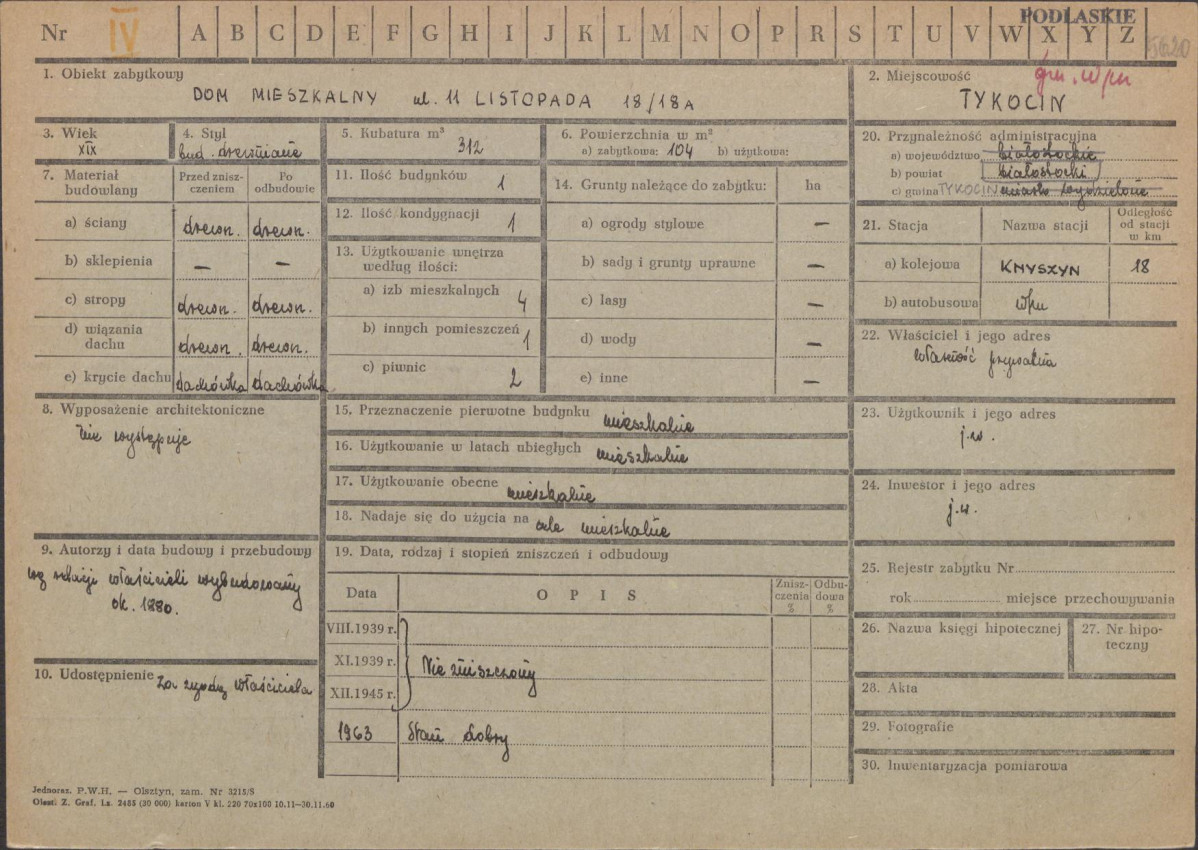 Nr IV A B C D E F G H I J K L M N O P R S T U V W X Y Z
PODLASKIE
5620
1. Obiekt zabytkowy
DOM MIESZKALNY ul. 11 LISTOPADA 18/18A
2. Miejscowość
gm. w/m
TYKOCIN
3. Wiek
XIX
4. Styl
bud. drewniane
5. Kubatura m³
312
6. Powierzchnia w m²
a) zabytkowa: 104 b) użytkowa:
20. Przynależność administracyjna
a) województwo białostockie
b) powiat białostocki
c) gmina TYKOCIN miasto wydzielone
7. Materiał budowlany
Przed zniszczeniem
Po odbudowie
a) ściany drewn. drewn.
b) sklepienia — —
c) stropy drewn. drewn.
d) wiązania dachu drewn. drewn.
e) krycie dachu dachówka dachówka
11. Ilość budynków 1
12. Ilość kondygnacji 1
13. Użytkowanie wnętrza
według ilości:
a) izb mieszkalnych 4
b) innych pomieszczeń 1
c) piwnic 2
14. Grunty należące do zabytku: ha
a) ogrody stylowe —
b) sady i grunty uprawne —
c) lasy —
d) wody —
e) inne —
21. Stacja
Nazwa stacji
Odległość
od stacji
w km
a) kolejowa KNYSZYN 18
b) autobusowa w/m
22. Właściciel i jego adres
własność prywatna
8. Wyposażenie architektoniczne
nie występuje
15. Przeznaczenie pierwotne budynku mieszkalne
16. Użytkowanie w latach ubiegłych mieszkalne
17. Użytkowanie obecne mieszkalne
18. Nadaje się do użycia na cele mieszkalne
23. Użytkownik i jego adres
j.w.
24. Inwestor i jego adres
j.w.
9. Autorzy i data budowy i przebudowy
wg relacji właścicieli wybudowany
ok. 1880.
10. Udostępnienie za zgodą właściciela
19. Data, rodzaj i stopień zniszczeń i odbudowy
Data
OPIS
Zniszczenia %
Odbudowa %
VIII.1939 r.
XI.1939 r. Nie zniszczony
XII.1945 r.
1963 Stan dobry
25. Rejestr zabytku Nr
rok miejsce przechowywania
26. Nazwa księgi hipotecznej
27. Nr hipoteczny
28. Akta
29. Fotografie
30. Inwentaryzacja pomiarowa
Jednoraz. P.W.H. — Olsztyn, zam. Nr 3215/S
Olszt. Z. Graf. Lz. 2455 (30 000) karton V kl. 220 70x100 10.11—30.11.60